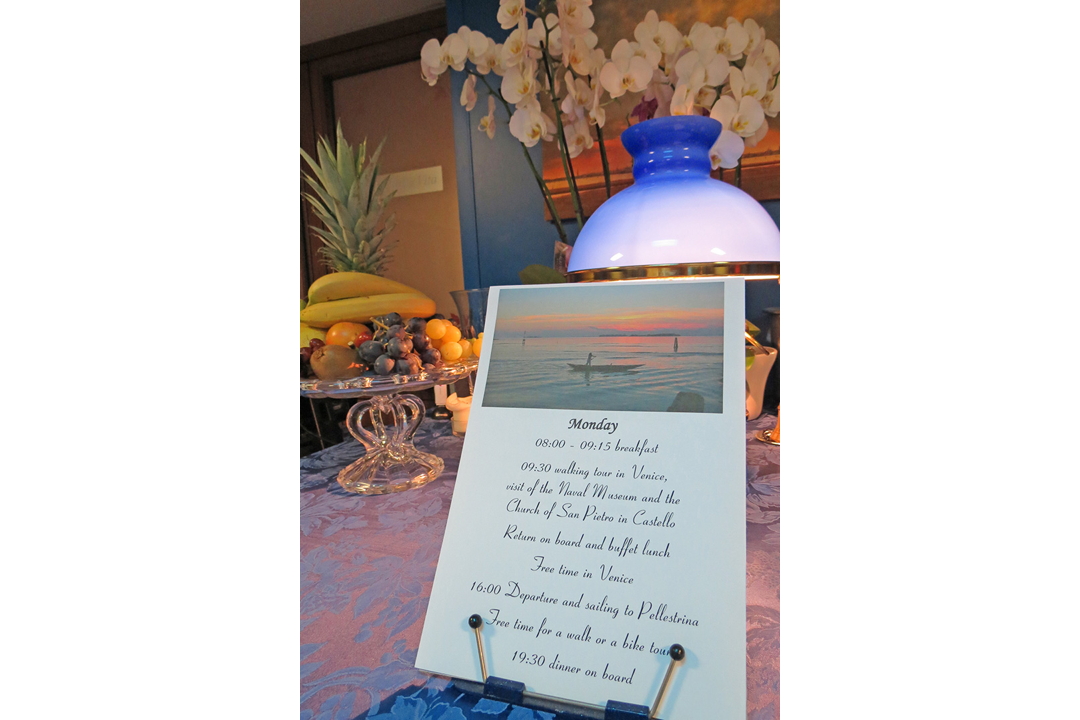 Monday
08:00 - 09:15 breakfast
09:30 walking tour in Venice,
visit of the Naval Museum and the
Church of San Pietro in Castello
Return on board and buffet lunch
Free time in Venice
16:00 Departure and sailing to Pellestrina
Free time for a walk or a bike tour
19:30 dinner on board